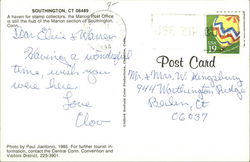 SOUTHINGTON, CT 06489
A haven for stamp collectors, the Marion Post Office
is still the hub of the Marion section of Southington,
Conn.
19
Dear Elsie & Warren
Having a wonderful
time, wish you
were here.
Love
Clov
Post Card
Mr. & Mrs. W. Kingsbury
944 Worthington Ridge
Berlin, Ct
06037
Photo by Paul Jiantonio, 1985. For further tourist in-
formation, contact the Central Conn. Convention and
Visitors District, 225-3901.